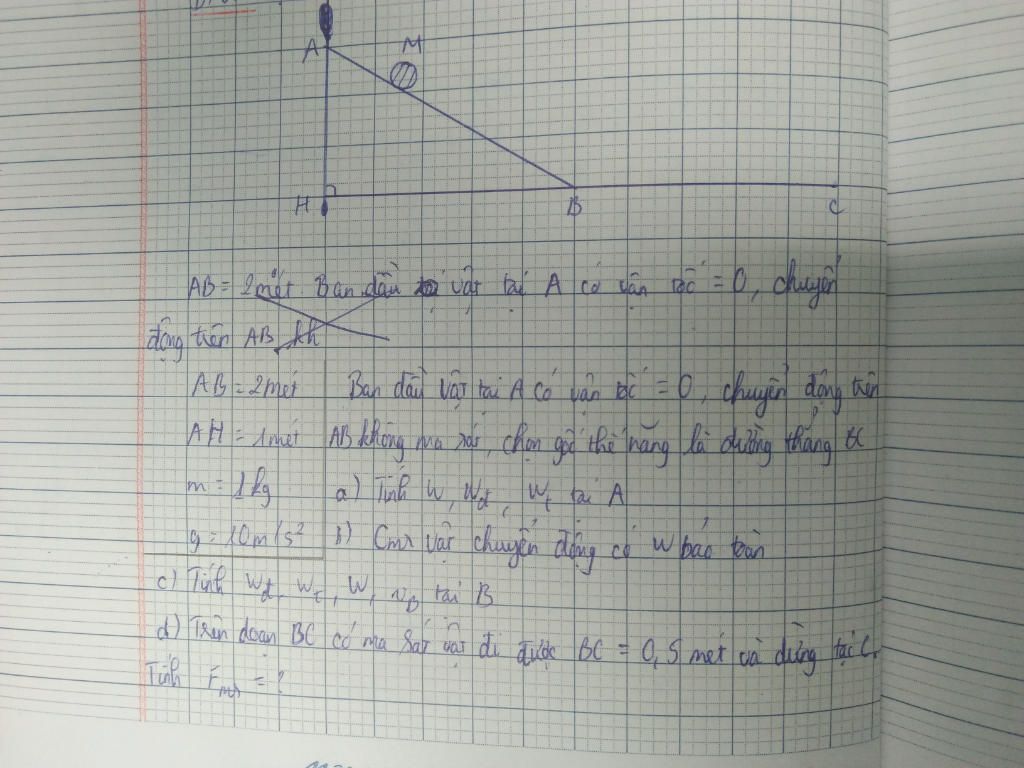 A
M
H
B
C
AB = 2mét Ban đầu vật tại A có vận tốc = 0, chuyển
động trên AB kh
AB = 2mét Ban đầu vật tại A có vận tốc = 0, chuyển động trên
AH = 1mét AB không ma sát, chọn gốc thế năng là đường thẳng
m = 1kg a) Tính W, Wđ, Wt tại A
g = 10m/s² b) Cmr vật chuyển động có W bảo toàn
c) Tính Wđ, Wt, W, vB tại B
d) Trên đoạn BC có ma sát vật đi được BC = 0,5 mét và dừng tại C.
Tính Fms = ?